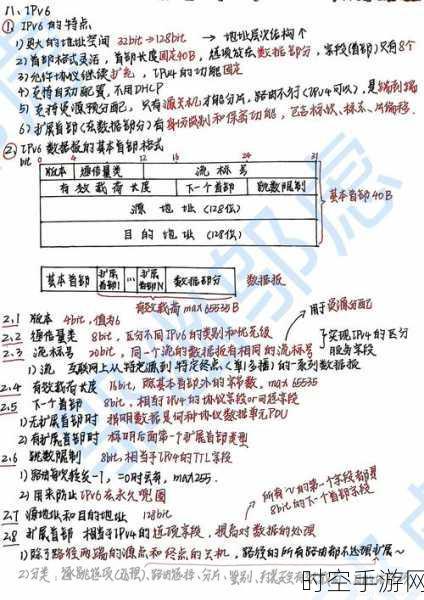 八、IPv6
① IPv6的特点
1)更大的地址空间 32bit→128bit → 地址层次结构个
2)首部格式灵活，首部长度固定40B，选项放在数据部分，字段(首部)只有8个
3)允许协议继续扩充，IPv4的功能固定
4)支持自动配置，不用DHCP
5)支持资源预分配，只有源主机才能分片，路由不行(IPv4可以)，是端到端
6)扩展首部(在数据部分)有身份鉴别和保密功能，
② IPv6数据报的基本首部格式
bit 0 4 12 16 24 31
版本 通信量类 流标号
有效载荷长度 下一个首部 跳数限制
源地址(128位)
目的地址(128位)
基本首部40B
基本首部 扩展首部1 … 扩展首部N 数据部分 数据报
有效载荷 max 65535B
2.1 版本 4bit，值为6
用于资源分配
2.2 通信量类 8bit，区分不同IPv6的类别和优先级
2.3 流标号 20bit，同一个流的数据报有相同的流标号
实现IPv4的区分服务字段
1)流 互联网上从特定源到特定终点(单/多播)的一系列数据报
2.4 有效载荷长度 16bit，除基本首部外的字节数，max 65535
2.5 下一个首部 8bit，相当IPv4的协议字段or可选字段
1)无扩展首部时 指明数据是何种协议数据单元PDU
2)有扩展首部时 标明后面第一个扩展首部类型
2.6 跳数限制 8bit，相当于IPv4的TTL字段
1)路由每次转发-1，=0时丢弃，max255.
2)用来防止IPv6在永久兜圈
所有~的第一个字段都是8bit的下一个首部字段
2.7 源地址和目的地址 128bit
2.8 扩展首部 相当于IPv4的选项字段，提高对数据的处理
1)除了路径两端的源点和终点的主机，路径的所有路由都不处理扩展~
2)分类：逐跳选项、路由选择、分片、鉴别、
时空手游网